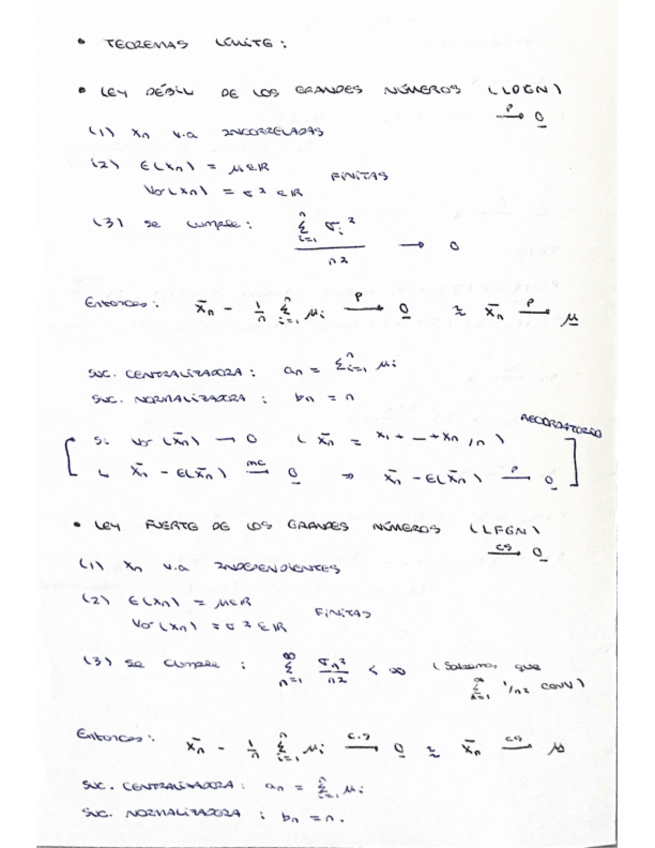 • TEOREMAS LÍMITE:
• LEY DÉBIL DE LOS GRANDES NÚMEROS (LDGN)
P→ 0
(1) Xn v.a INCORRELADAS
(2) E(Xn) = μ∈ℝ
Var(Xn) = σ² ∈ℝ FINITAS
(3) Se cumple: Σ_{i=1}^{n} σi² / n² → 0
Entonces: X̄n - 1/n Σ_{i=1}^{n} μi P→ 0 ≈ X̄n P→ μ
SUC. CENTRALIZADORA: an = Σ_{i=1}^{n} μi
SUC. NORMALIZADORA: bn = n
RECORDATORIO
[ Si Var(X̄n) → 0 (X̄n = X1 + — + Xn /n)
↳ X̄n - E(X̄n) mc→ 0 ⇒ X̄n - E(X̄n) P→ 0 ]
• LEY FUERTE DE LOS GRANDES NÚMEROS (LFGN)
cs→ 0
(1) Xn v.a INDEPENDIENTES
(2) E(Xn) = μ∈ℝ
Var(Xn) = σ²∈ℝ FINITAS
(3) Se cumple: Σ_{n=1}^{∞} σn²/n² < ∞ (Sabemos que
Σ_{n=1}^{∞} 1/n² conv)
Entonces: X̄n - 1/n Σ_{i=1}^{n} μi c.s→ 0 ≈ X̄n cs→ μ
SUC. CENTRALIZADORA: an = Σ_{i=1}^{n} μi
SUC. NORMALIZADORA: bn = n.